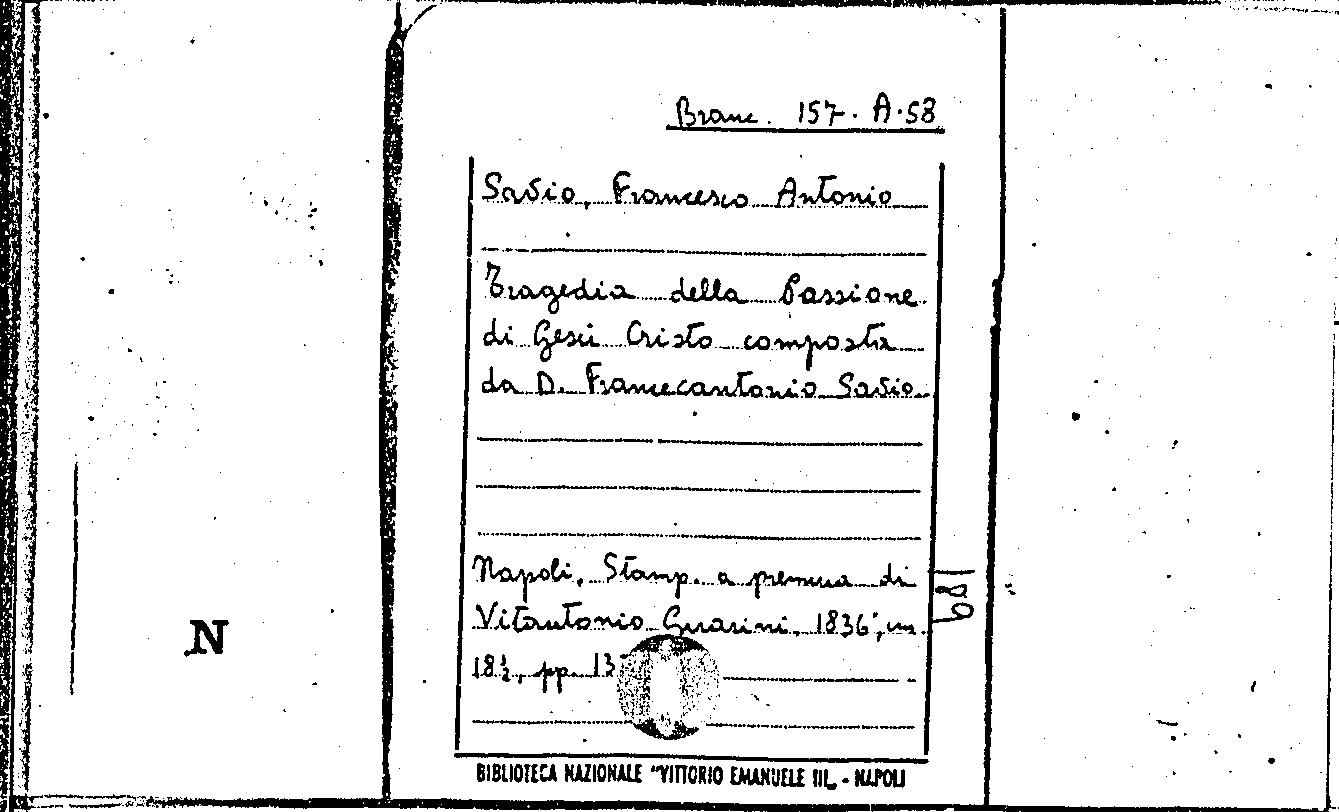 Branc. 157. A. 58
Savio, Francesco Antonio
Tragedia della Passione
di Gesù Cristo composta
da D. Francecantonio Savio.
Napoli, Stamp. a premura di
Vitantonio Guarini, 1836, in
18½, pp. 13
189
N
BIBLIOTECA NAZIONALE "VITTORIO EMANUELE III„ - NAPOLI